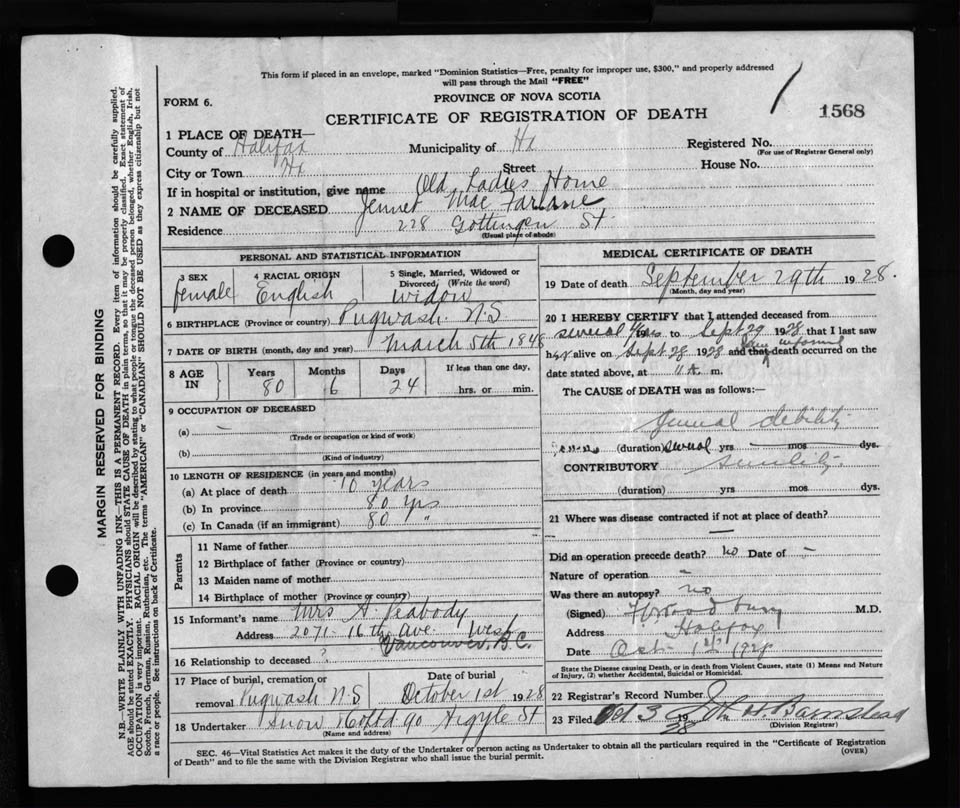 This form if placed in an envelope, marked "Dominion Statistics—Free, penalty for improper use, $300," and properly addressed
will pass through the Mail "FREE"
PROVINCE OF NOVA SCOTIA
FORM 6.
CERTIFICATE OF REGISTRATION OF DEATH
1568
1 PLACE OF DEATH—
County of Halifax Municipality of Hx Registered No.
(For use of Registrar General only)
City or Town Hx Street House No.
If in hospital or institution, give name Old Ladies Home
2 NAME OF DECEASED Jennet MacFarlane
Residence 228 Gottingen St
(Usual place of abode)
PERSONAL AND STATISTICAL INFORMATION
3 SEX female
4 RACIAL ORIGIN English
5 Single, Married, Widowed or Divorced, (Write the word) widow
6 BIRTHPLACE (Province or country) Pugwash N.S
7 DATE OF BIRTH (month, day and year) March 5th 1848
8 AGE IN Years 80 Months 6 Days 24 If less than one day, hrs. or min.
9 OCCUPATION OF DECEASED
(a) -
(Trade or occupation or kind of work)
(b)
(Kind of industry)
10 LENGTH OF RESIDENCE (in years and months)
(a) At place of death 10 years
(b) In province 80 yrs
(c) In Canada (if an immigrant) 80 "
Parents
11 Name of father
12 Birthplace of father (Province or country)
13 Maiden name of mother
14 Birthplace of mother (Province or country)
15 Informant's name Mrs A. Peabody
Address 2071-16th Ave West
Vancouver, B.C.
16 Relationship to deceased ?
17 Place of burial, cremation or removal Pugwash N.S
Date of burial October 1st 1928
18 Undertaker Snow & Co Ltd 90 Argyle St
(Name and address)
MEDICAL CERTIFICATE OF DEATH
19 Date of death September 29th 1928.
(Month, day and year)
20 I HEREBY CERTIFY that I attended deceased from
several years 19 to Sept 29 1928 that I last saw
her alive on Sept 28 1928 and that I am informed death occurred on the
date stated above, at 11 A. m.
The CAUSE of DEATH was as follows:—
General debility
(duration) several yrs mos dys.
CONTRIBUTORY Senility
(duration) yrs mos dys.
21 Where was disease contracted if not at place of death?
—
Did an operation precede death? No Date of -
Nature of operation -
Was there an autopsy? no
(Signed) M.D.
Address Halifax
Date Oct 1st 1928
State the Disease causing Death, or in death from Violent Causes, state (1) Means and Nature
of Injury, (2) whether Accidental, Suicidal or Homicidal.
22 Registrar's Record Number
23 Filed Oct 3 1928 John H Barnstead
(Division Registrar)
SEC. 46—Vital Statistics Act makes it the duty of the Undertaker or person acting as Undertaker to obtain all the particulars required in the "Certificate of Registration
of Death" and to file the same with the Division Registrar who shall issue the burial permit.
(OVER)
MARGIN RESERVED FOR BINDING
N.B.—WRITE PLAINLY WITH UNFADING INK—THIS IS A PERMANENT RECORD. Every item of information should be carefully supplied.
AGE should be stated EXACTLY. PHYSICIANS should STATE CAUSE OF DEATH in plain terms, so that it may be properly classified. Exact statement of
OCCUPATION is very important. RACIAL ORIGIN will be described by stating to what people or tongue the deceased person belonged, whether English, Irish,
Scotch, French, German, Russian, Ruthenian, etc. The terms "AMERICAN" or "CANADIAN" SHOULD NOT BE USED as they express citizenship but not
a race or people. See instructions on back of Certificate.